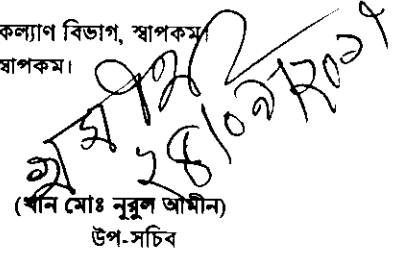 কল্যাণ বিভাগ, স্বাপকম।
স্বাপকম।
২৪/০৯/২০১৭
(খান মোঃ নুরুল আমীন)
উপ-সচিব